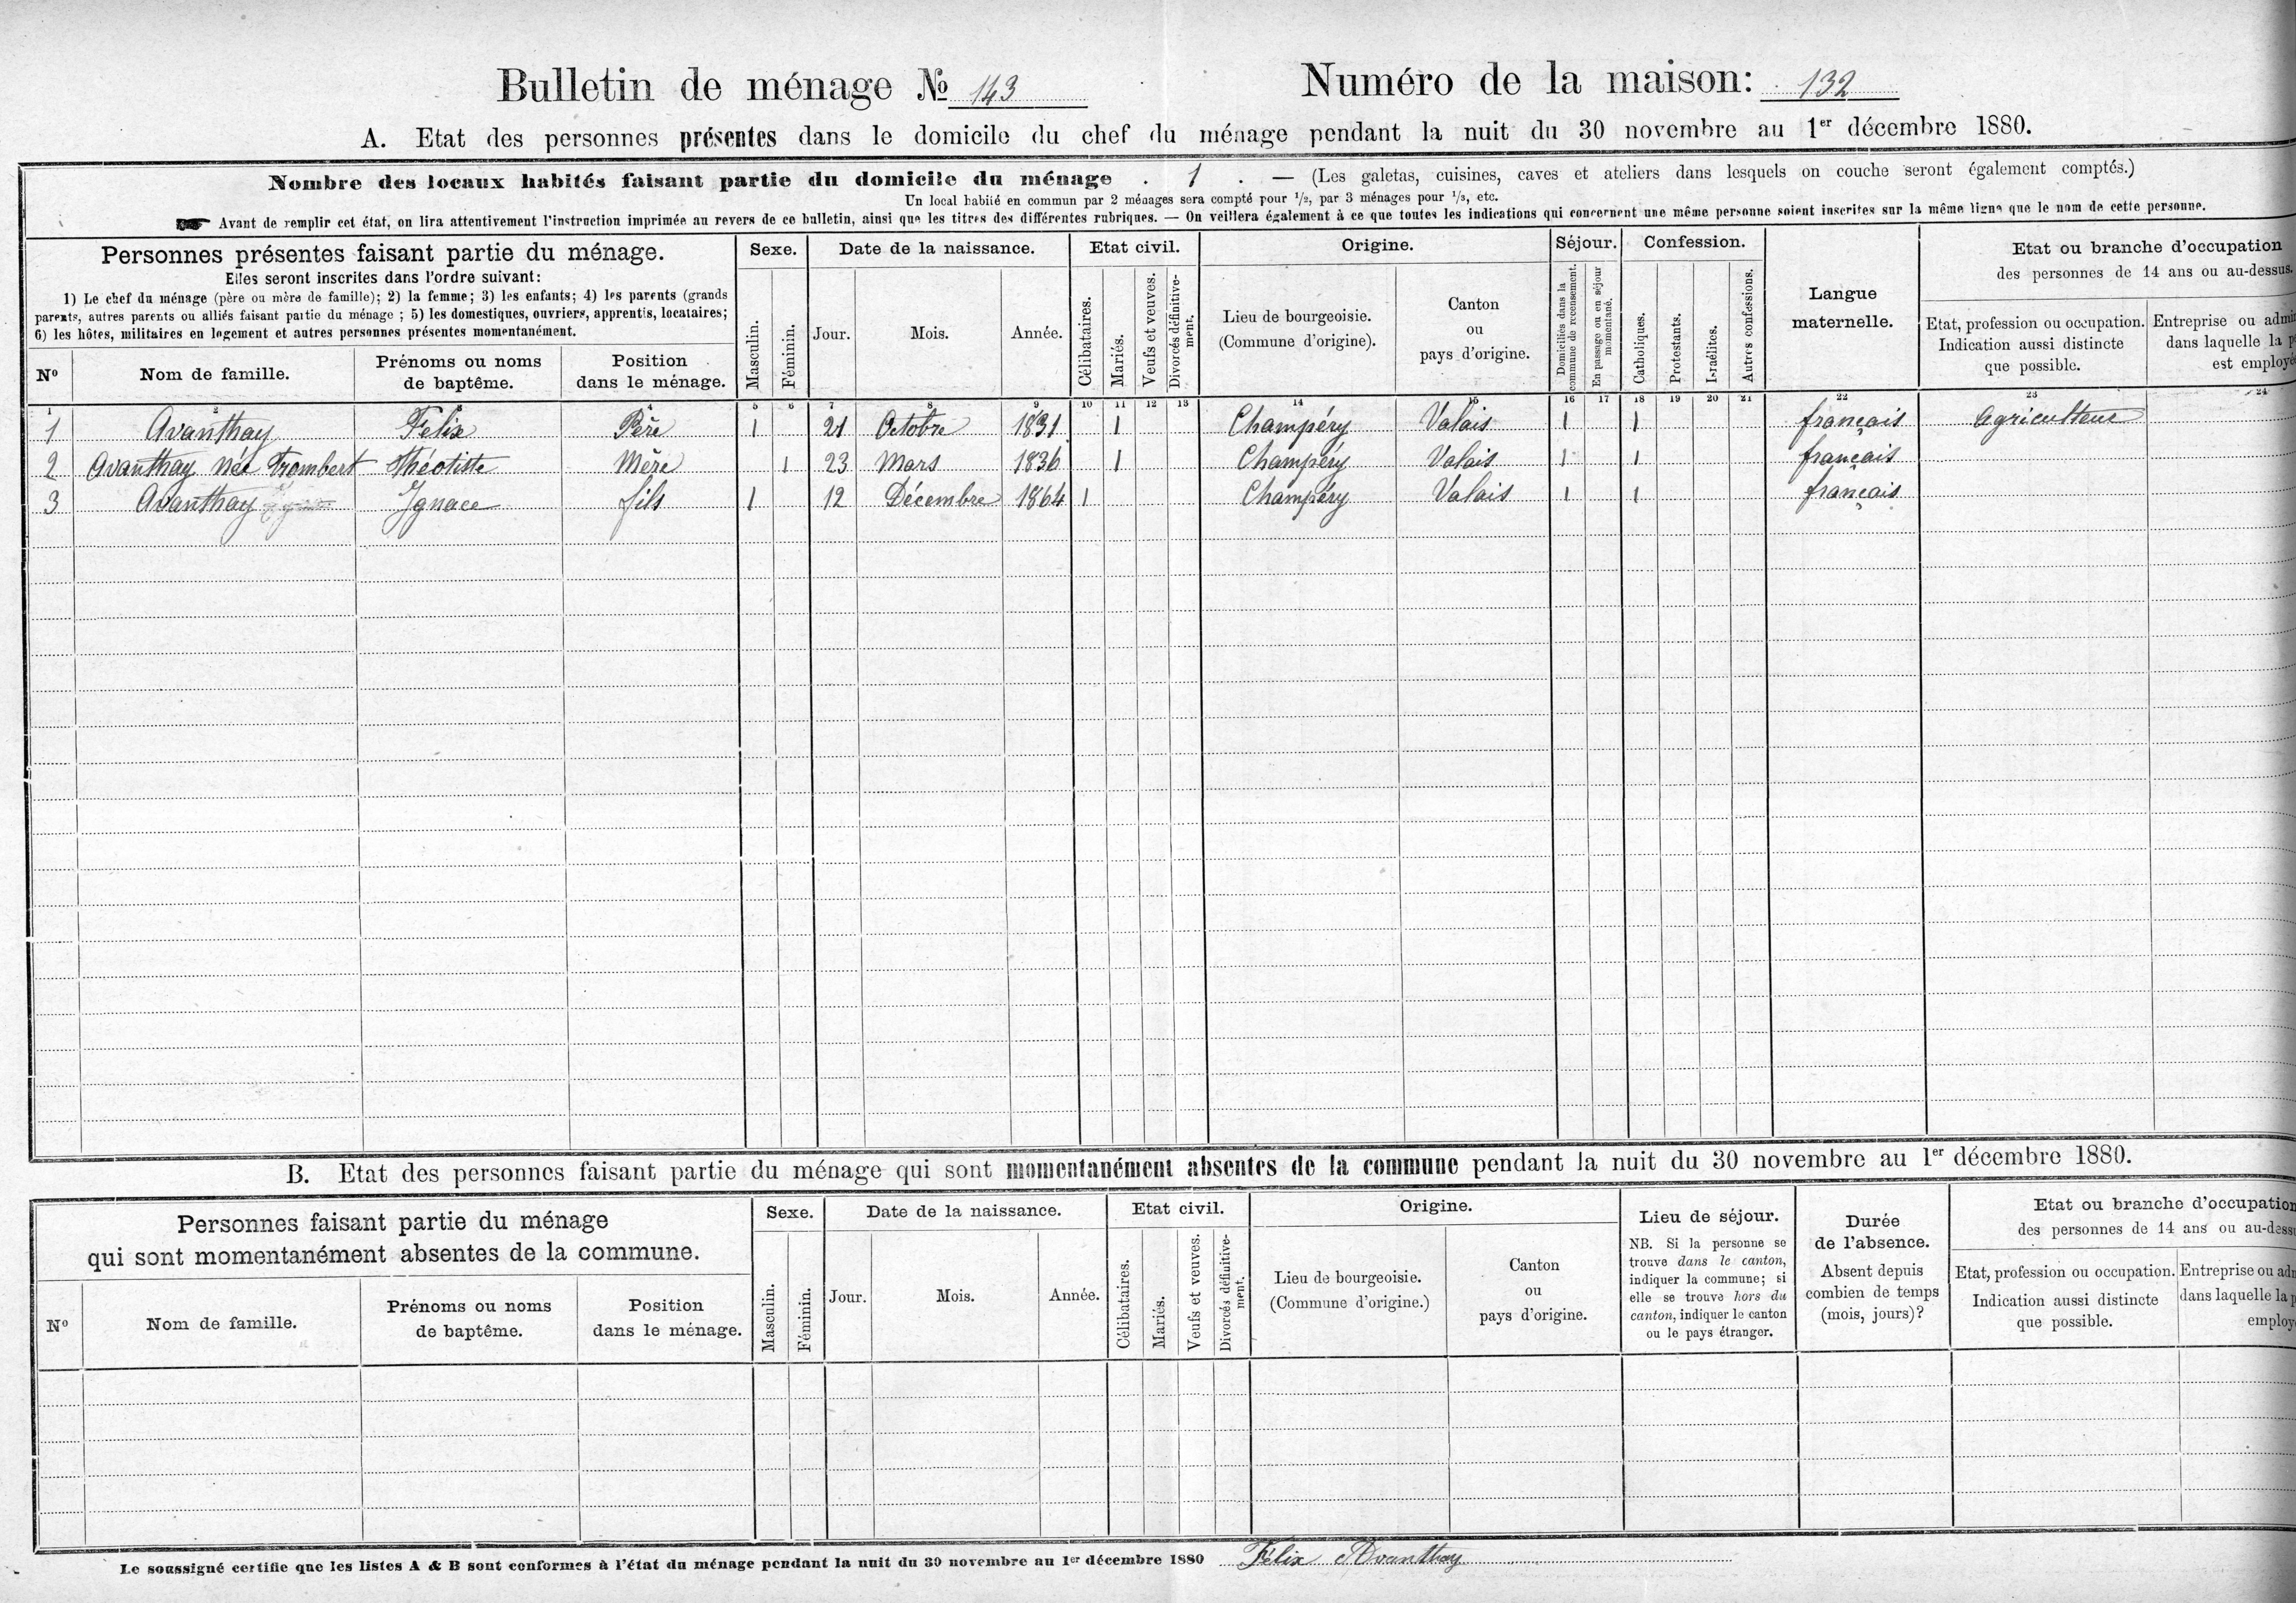 Bulletin de ménage No 143 Numéro de la maison: 132
A. Etat des personnes présentes dans le domicile du chef du ménage pendant la nuit du 30 novembre au 1er décembre 1880.
Nombre des locaux habités faisant partie du domicile du ménage . 1 . — (Les galetas, cuisines, caves et ateliers dans lesquels on couche seront également comptés.)
Un local habité en commun par 2 ménages sera compté pour 1/2, par 3 ménages pour 1/3, etc.
Avant de remplir cet état, on lira attentivement l'instruction imprimée au revers de ce bulletin, ainsi que les titres des différentes rubriques. — On veillera également à ce que toutes les indications qui concernent une même personne soient inscrites sur la même ligne que le nom de cette personne.
Personnes présentes faisant partie du ménage.
Elles seront inscrites dans l'ordre suivant:
1) Le chef du ménage (père ou mère de famille); 2) la femme; 3) les enfants; 4) les parents (grands
parents, autres parents ou alliés faisant partie du ménage ; 5) les domestiques, ouvriers, apprentis, locataires;
6) les hôtes, militaires en logement et autres personnes présentes momentanément.
No
Nom de famille.
Prénoms ou noms
de baptême.
Position
dans le ménage.
Sexe.
Masculin.
Féminin.
Date de la naissance.
Jour.
Mois.
Année.
Etat civil.
Célibataires.
Mariés.
Veufs et veuves.
Divorcés définitive-
ment.
Origine.
Lieu de bourgeoisie.
(Commune d'origine).
Canton
ou
pays d'origine.
Séjour.
Domiciliés dans la
commune de recensement.
En passage ou en séjour
momentané.
Confession.
Catholiques.
Protestants.
Israélites.
Autres confessions.
Langue
maternelle.
Etat ou branche d'occupation
des personnes de 14 ans ou au-dessus.
Etat, profession ou occupation.
Indication aussi distincte
que possible.
Entreprise ou
dans laquelle la
est
1 2 3 4 5 6 7 8 9 10 11 12 13 14 15 16 17 18 19 20 21 22 23 24
1 Avanthay Félix Père 1 21 Octobre 1831 1 Champéry Valais 1 1 français Agriculteur
2 Avanthay née Trombert Théotiste Mère 1 23 Mars 1836 1 Champéry Valais 1 1 français
3 Avanthay Ignace fils 1 12 Décembre 1864 1 Champéry Valais 1 1 français
B. Etat des personnes faisant partie du ménage qui sont momentanément absentes de la commune pendant la nuit du 30 novembre au 1er décembre 1880.
Personnes faisant partie du ménage
qui sont momentanément absentes de la commune.
No
Nom de famille.
Prénoms ou noms
de baptême.
Position
dans le ménage.
Sexe.
Masculin.
Féminin.
Date de la naissance.
Jour.
Mois.
Année.
Etat civil.
Célibataires.
Mariés.
Veufs et veuves.
Divorcés définitive-
ment.
Origine.
Lieu de bourgeoisie.
(Commune d'origine.)
Canton
ou
pays d'origine.
Lieu de séjour.
NB. Si la personne se
trouve dans le canton,
indiquer la commune; si
elle se trouve hors du
canton, indiquer le canton
ou le pays étranger.
Durée
de l'absence.
Absent depuis
combien de temps
(mois, jours)?
Etat ou branche d'occupation
des personnes de 14 ans ou
Etat, profession ou occupation.
Indication aussi distincte
que possible.
Entreprise ou
dans laquelle la
Le soussigné certifie que les listes A & B sont conformes à l'état du ménage pendant la nuit du 30 novembre au 1er décembre 1880 Félix Avanthay